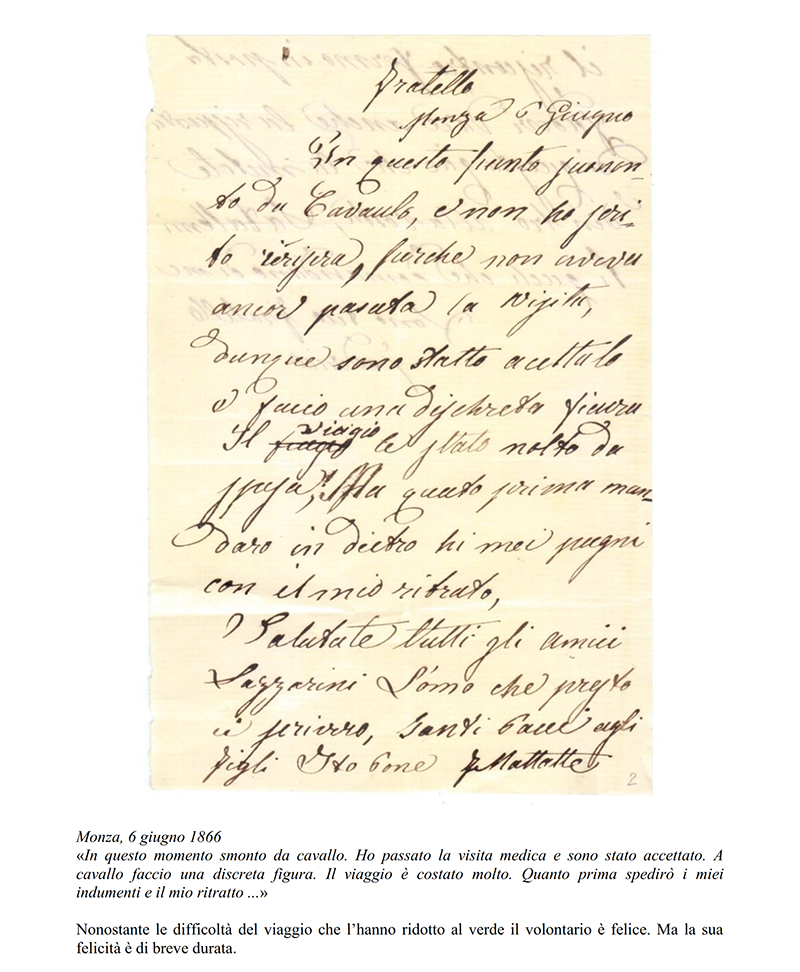 Fratello
Monza 6 Giugno
In questo punto smon-
to da Cavaulo, e non ho scri-
to , perche non aveva
ancor pasata la visita,
dunque sono statto acettato
e faccio una dischreta ficura
Il viagio le stato molto da
spesa, Ma quato prima man-
daro in dietro hi mei pagni
con il mio ritrato,
Salutate tutti gli amici
Lazzarini L'omo che presto
ci scrivro, santi baci agli
figli Sto bone F Mattatte
2
Monza, 6 giugno 1866
«In questo momento smonto da cavallo. Ho passato la visita medica e sono stato accettato. A
cavallo faccio una discreta figura. Il viaggio è costato molto. Quanto prima spedirò i miei
indumenti e il mio ritratto ...»
Nonostante le difficoltà del viaggio che l’hanno ridotto al verde il volontario è felice. Ma la sua
felicità è di breve durata.